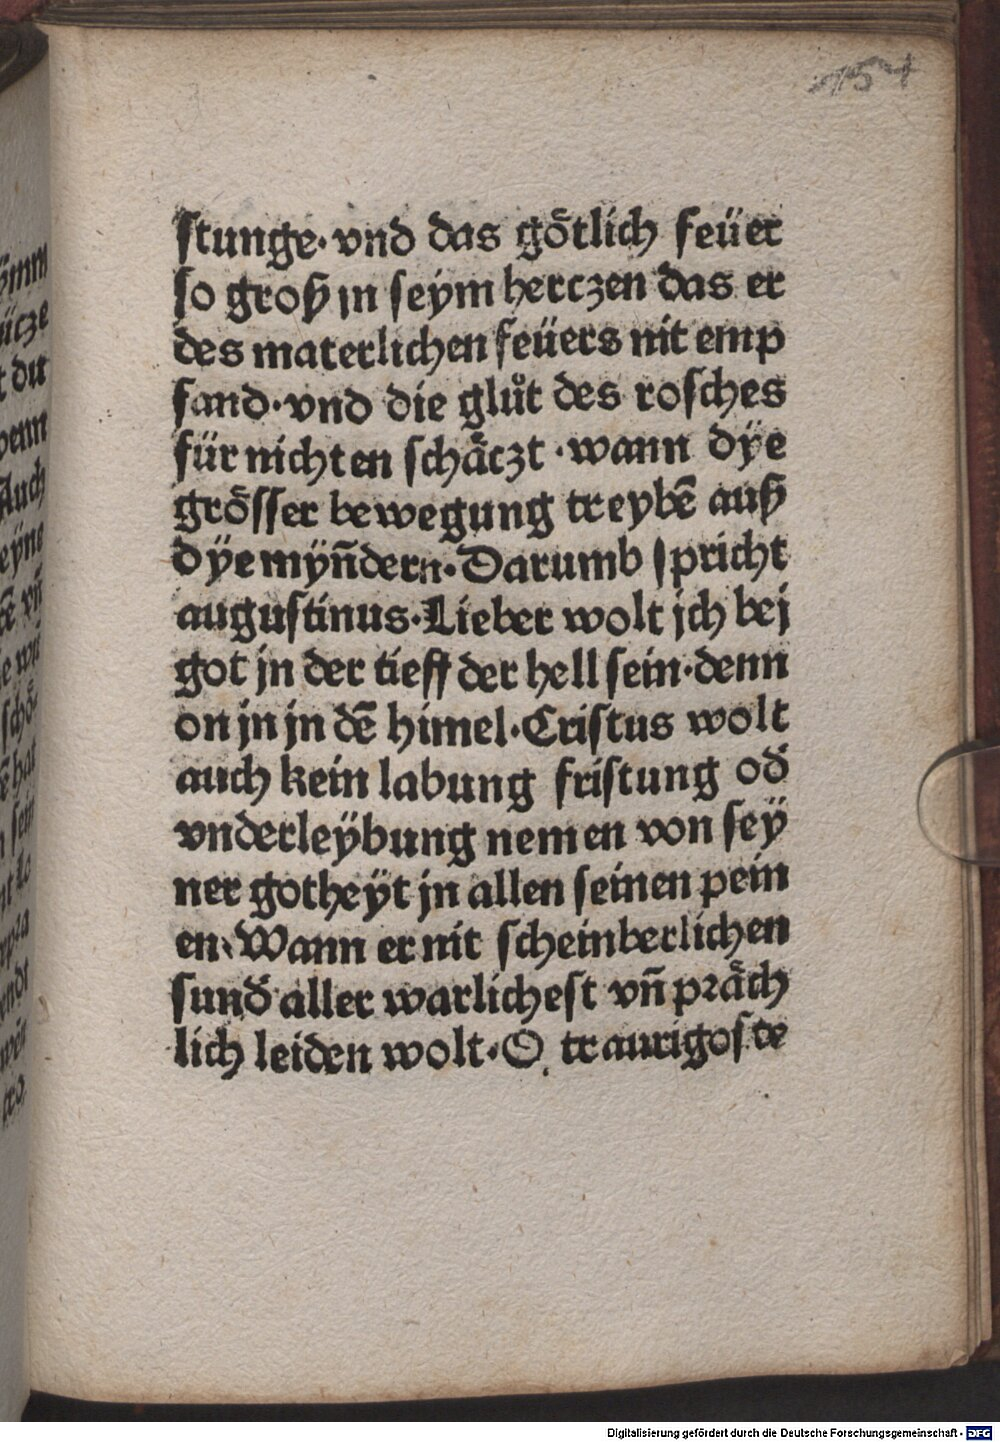 154
ſtunge·vnd das goͤtlich feüer
ſo groß jn ſeym herczen das er
des materlichen feüers nit emp
fand·vnd die gluͦt des roſches
für nichten ſchaͤczt·wann dÿe
groͤſſer bewegung treybē auß
dÿe myn̄dern·Darumb ſpricht
auguſtinus·Lieber wolt jch bej
got jn der tieff der hell ſein·denn
on jn jn dē himel·Criſtus wolt
auch kein labung friſtung od̄
vnderleÿbung nemen von ſeÿ
ner gotheÿt jn allen ſeinen pein
en·Wann er nit ſcheinberlichen
ſund̄ aller warlicheſt vn̄ pꝛaͤch
lich leiden wolt·O traurigoſte
Digitalisierung gefördert durch die Deutsche Forschungsgemeinschaft - DFG